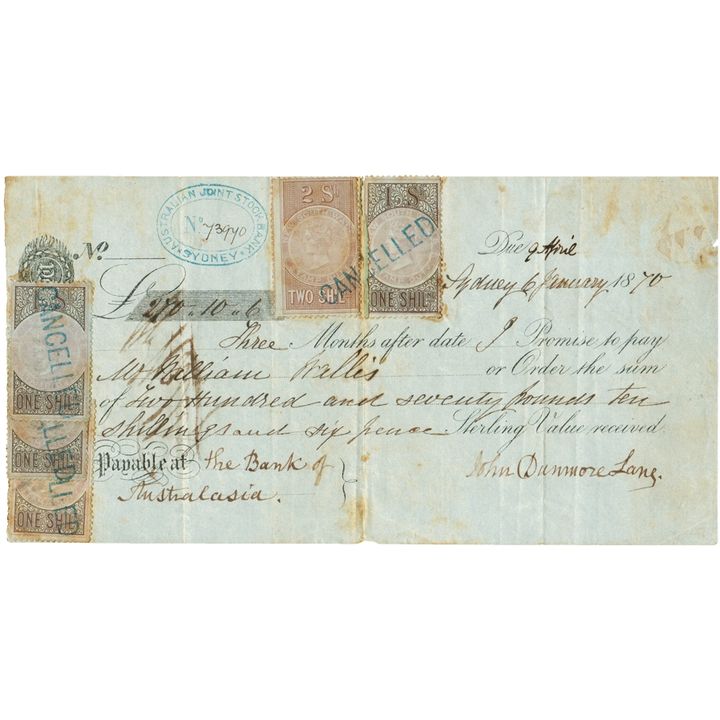 AUSTRALIAN JOINT STOCK BANK
No 73970
SYDNEY
2 Sh
TWO SHILS
1 Sh
ONE SHILG
CANCELLED
No
Due 9 April
Sydney 6 January 1870
£270 " 10 " 6
Three Months after date I Promise to pay
Mr William Wallis or Order the sum
of Two Hundred and seventy pounds ten
shillings and six pence Sterling Value received
Payable at the Bank of
Australasia.
John Dunmore Lang.
CANCELLED
ONE SHILG
ONE SHILG
ONE SHILG
CANCELLED